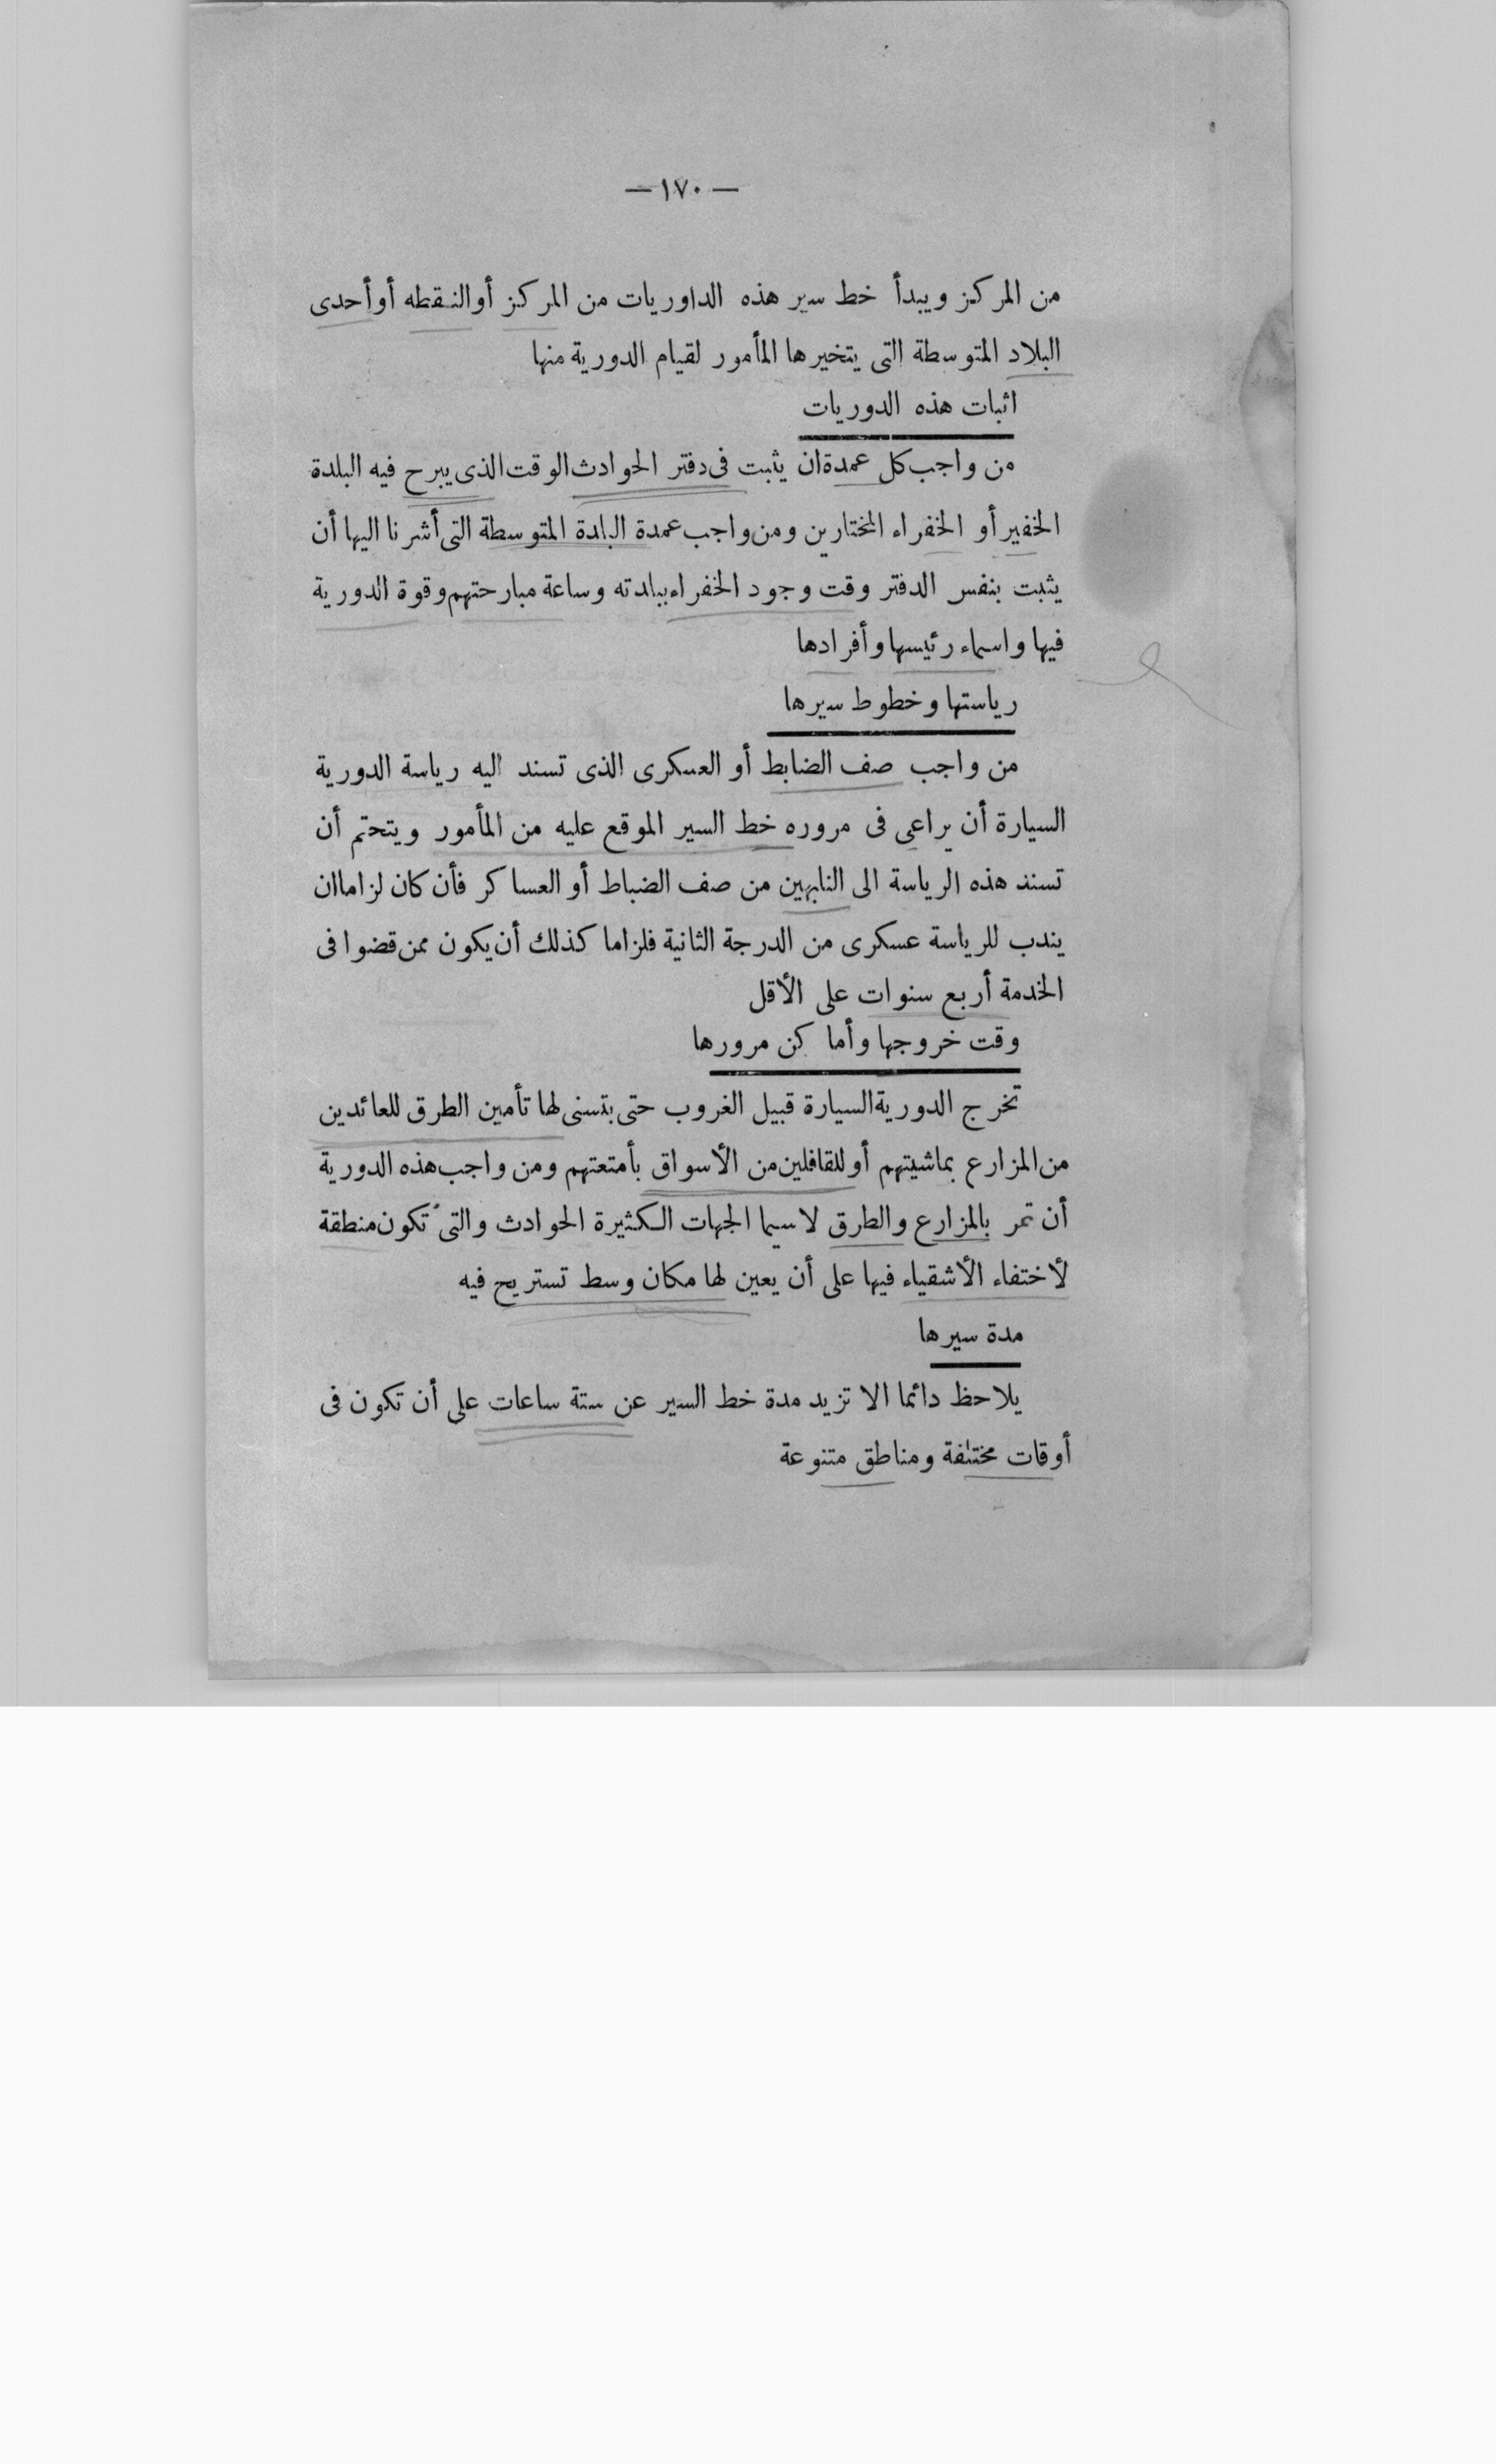 — ١٧٠ —
من المركز ويبدأ خط سير هذه الداوريات من المركز أو النقطه أو أحدى
البلاد المتوسطة التى يتخيرها المأمور لقيام الدورية منها
اثبات هذه الدوريات
من واجب كل عمدة ان يثبت فى دفتر الحوادث الوقت الذى يبرح فيه البلدة
الخفير أو الخفراء المختارين ومن واجب عمدة البلدة المتوسطة التى أشرنا اليها أن
يثبت بنفس الدفتر وقت وجود الخفراء ببلدته وساعة مبارحتهم وقوة الدورية
فيها واسماء رئيسها وأفرادها
رياستها وخطوط سيرها
من واجب صف الضابط أو العسكرى الذى تسند اليه رياسة الدورية
السيارة أن يراعى فى مروره خط السير الموقع عليه من المأمور ويتحتم أن
تسند هذه الرياسة الى النابهين من صف الضباط أو العساكر فأن كان لزاما ان
يندب للرياسة عسكرى من الدرجة الثانية فلزاما كذلك أن يكون ممن قضوا فى
الخدمة أربع سنوات على الأقل
وقت خروجها وأماكن مرورها
تخرج الدورية السيارة قبيل الغروب حتى يتسنى لها تأمين الطرق للعائدين
من المزارع بماشيتهم أو للقافلين من الأسواق بأمتعتهم ومن واجب هذه الدورية
أن تمر بالمزارع والطرق لا سيما الجهات الكثيرة الحوادث والتى تكون منطقة
لأختفاء الأشقياء فيها على أن يعين لها مكان وسط تستريح فيه
مدة سيرها
يلاحظ دائما الا تزيد مدة خط السير عن ستة ساعات على أن تكون فى
أوقات مختلفة ومناطق متنوعة